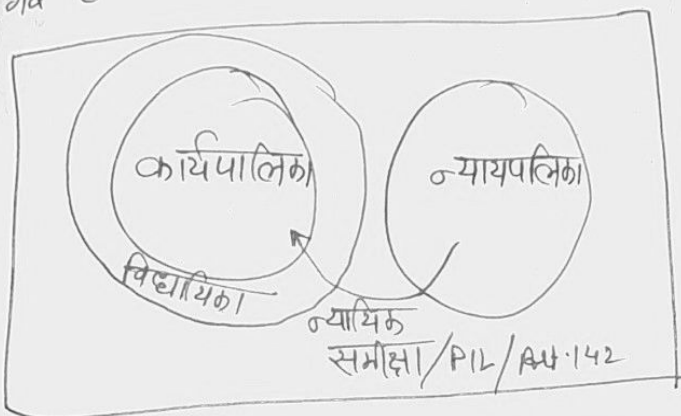 कार्यपालिका
न्यायपलिका
विधायिका
न्यायिक
समीक्षा/PIL/Art.142